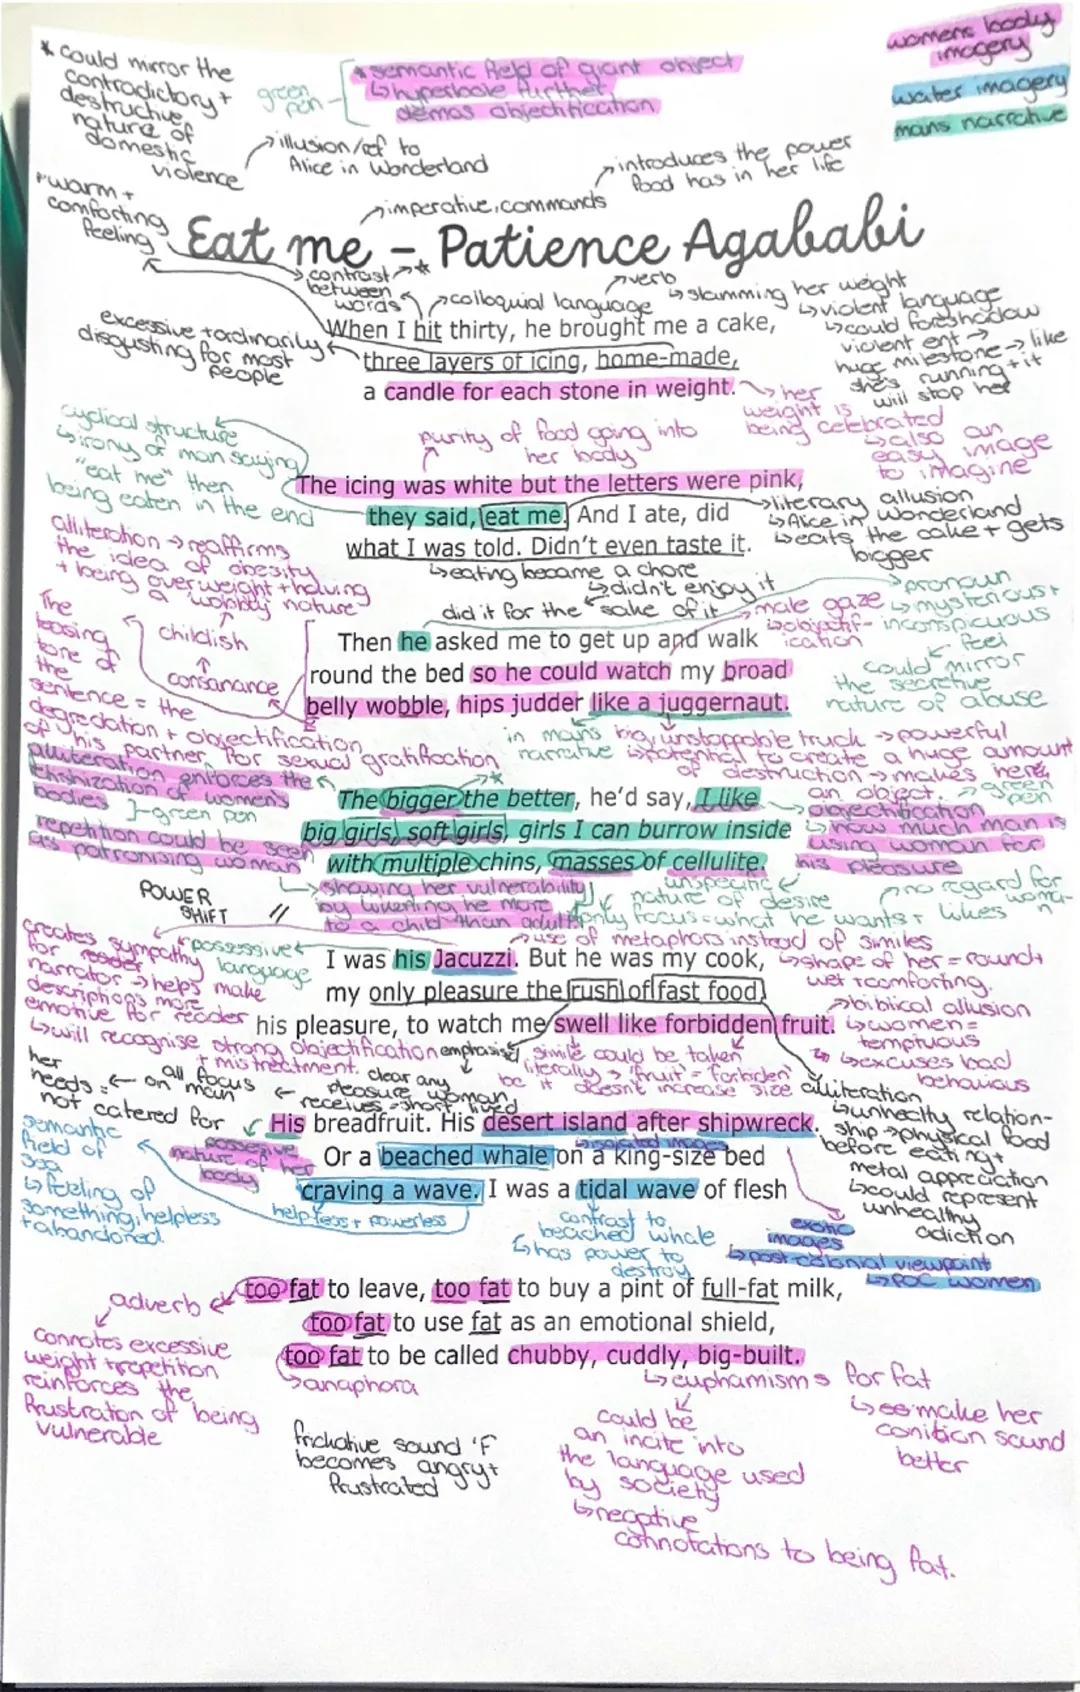 womens body
imagery
water imagery
mans narrative
* could mirror the
contradictory +
destructive
nature of
domestic
violence
green
pen
* semantic field of giant object
↳ hyperbole further
demos objectification
→ illusion/ref to
Alice in Wonderland
→ introduces the power
food has in her life
* warm +
comforting
feeling
→ imperative, commands
Eat me - Patience Agababi
→ contrast → *
between
words
→ colloquial language
→ verb
↳ slamming her weight
↳ violent language
↳ could foreshadow
violent ent →
huge milestone → like
she's running + it
will stop her
excessive + ordinarily
disgusting for most
people
When I hit thirty, he brought me a cake,
three layers of icing, home-made,
a candle for each stone in weight.
→ her
weight is
being celebrated
↳ also an
easy image
to imagine
cyclical structure
↳ irony of man saying
"eat me" then
being eaten in the end
purity of food going into
her body
The icing was white but the letters were pink,
they said, eat me. And I ate, did
what I was told. Didn't even taste it.
→ literary allusion
↳ Alice in Wonderland
↳ eats the cake + gets
bigger
↳ eating became a chore
↳ didn't enjoy it
did it for the sake of it
alliteration → reaffirms
the idea of obesity
+ being overweight + having
a wobbly nature
childish
consonance
The
teasing
tone of
the
sentence = the
degredation + objectification
of his partner for sexual gratification
→ male gaze
↳ objectif-
ication
→ pronoun
↳ mysterious +
inconspicuous
feel
could mirror
the secretive
nature of abuse
Then he asked me to get up and walk
round the bed so he could watch my broad
belly wobble, hips judder like a juggernaut.
in mans
narrative
big, unstoppable truck → powerful
↳ potential to create a huge amount
of destruction → makes her
an object.
→ green
pen
alliteration enforces the
fetishization of women's
bodies } - green pen
repetition could be seen
as patronising woman
→ *
The bigger the better, he'd say, I like
big girls, soft girls, girls I can burrow inside
with multiple chins, masses of cellulite.
objectification
↳ how much man is
using woman for
his pleasure
↳ showing her vulnerability
by likening he more
to a child than adult
unspecific
nature of desire
only focus = what he wants + likes
→ no regard for
woma-
n
POWER
SHIFT
//
creates sympathy
for reader
narrator → helps make
descriptions more
emotive for reader
↳ will recognise strong objectification
+ mistreatment.
possessive
language
→ use of metaphors instead of similes
↳ shape of her = round +
wet + comforting.
I was his Jacuzzi. But he was my cook,
my only pleasure the rush of fast food,
his pleasure, to watch me swell like forbidden fruit.
→ biblical allusion
↳ women =
temptuous
↳ excuses bad
behavious
emphasised
simile could be taken
literally → 'fruit' = forbiden
be it doesn't increase size
her
needs =
not catered for
← all focus
on man
← clear any
pleasure woman
receives = short lived
alliteration
↳ unhealthy relation-
ship → physical food
before eating +
metal appreciation
↳ could represent
unhealthy
adiction
His breadfruit. His desert island after shipwreck.
Or a beached whale on a king-size bed
craving a wave. I was a tidal wave of flesh
↳ isolated images
possesive
nature of her
body
semantic
field of
sea
↳ feeling of
something, helpless
+ abandoned.
helpless + powerless
contrast to
beached whale
↳ has power to
destroy
exotic
images
↳ post-colonial viewpoint
↳ POC women
too fat to leave, too fat to buy a pint of full-fat milk,
too fat to use fat as an emotional shield,
too fat to be called chubby, cuddly, big-built.
adverb
connotes excessive
weight + repetition
reinforces the
frustration of being
vulnerable
↳ anaphora
frickative sound 'F'
becomes angry +
frustrated
↳ euphamisms for fat
could be
an incite into
the language used
by society
↳ negative
connotations to being fat.
↳ make her
conition sound
better